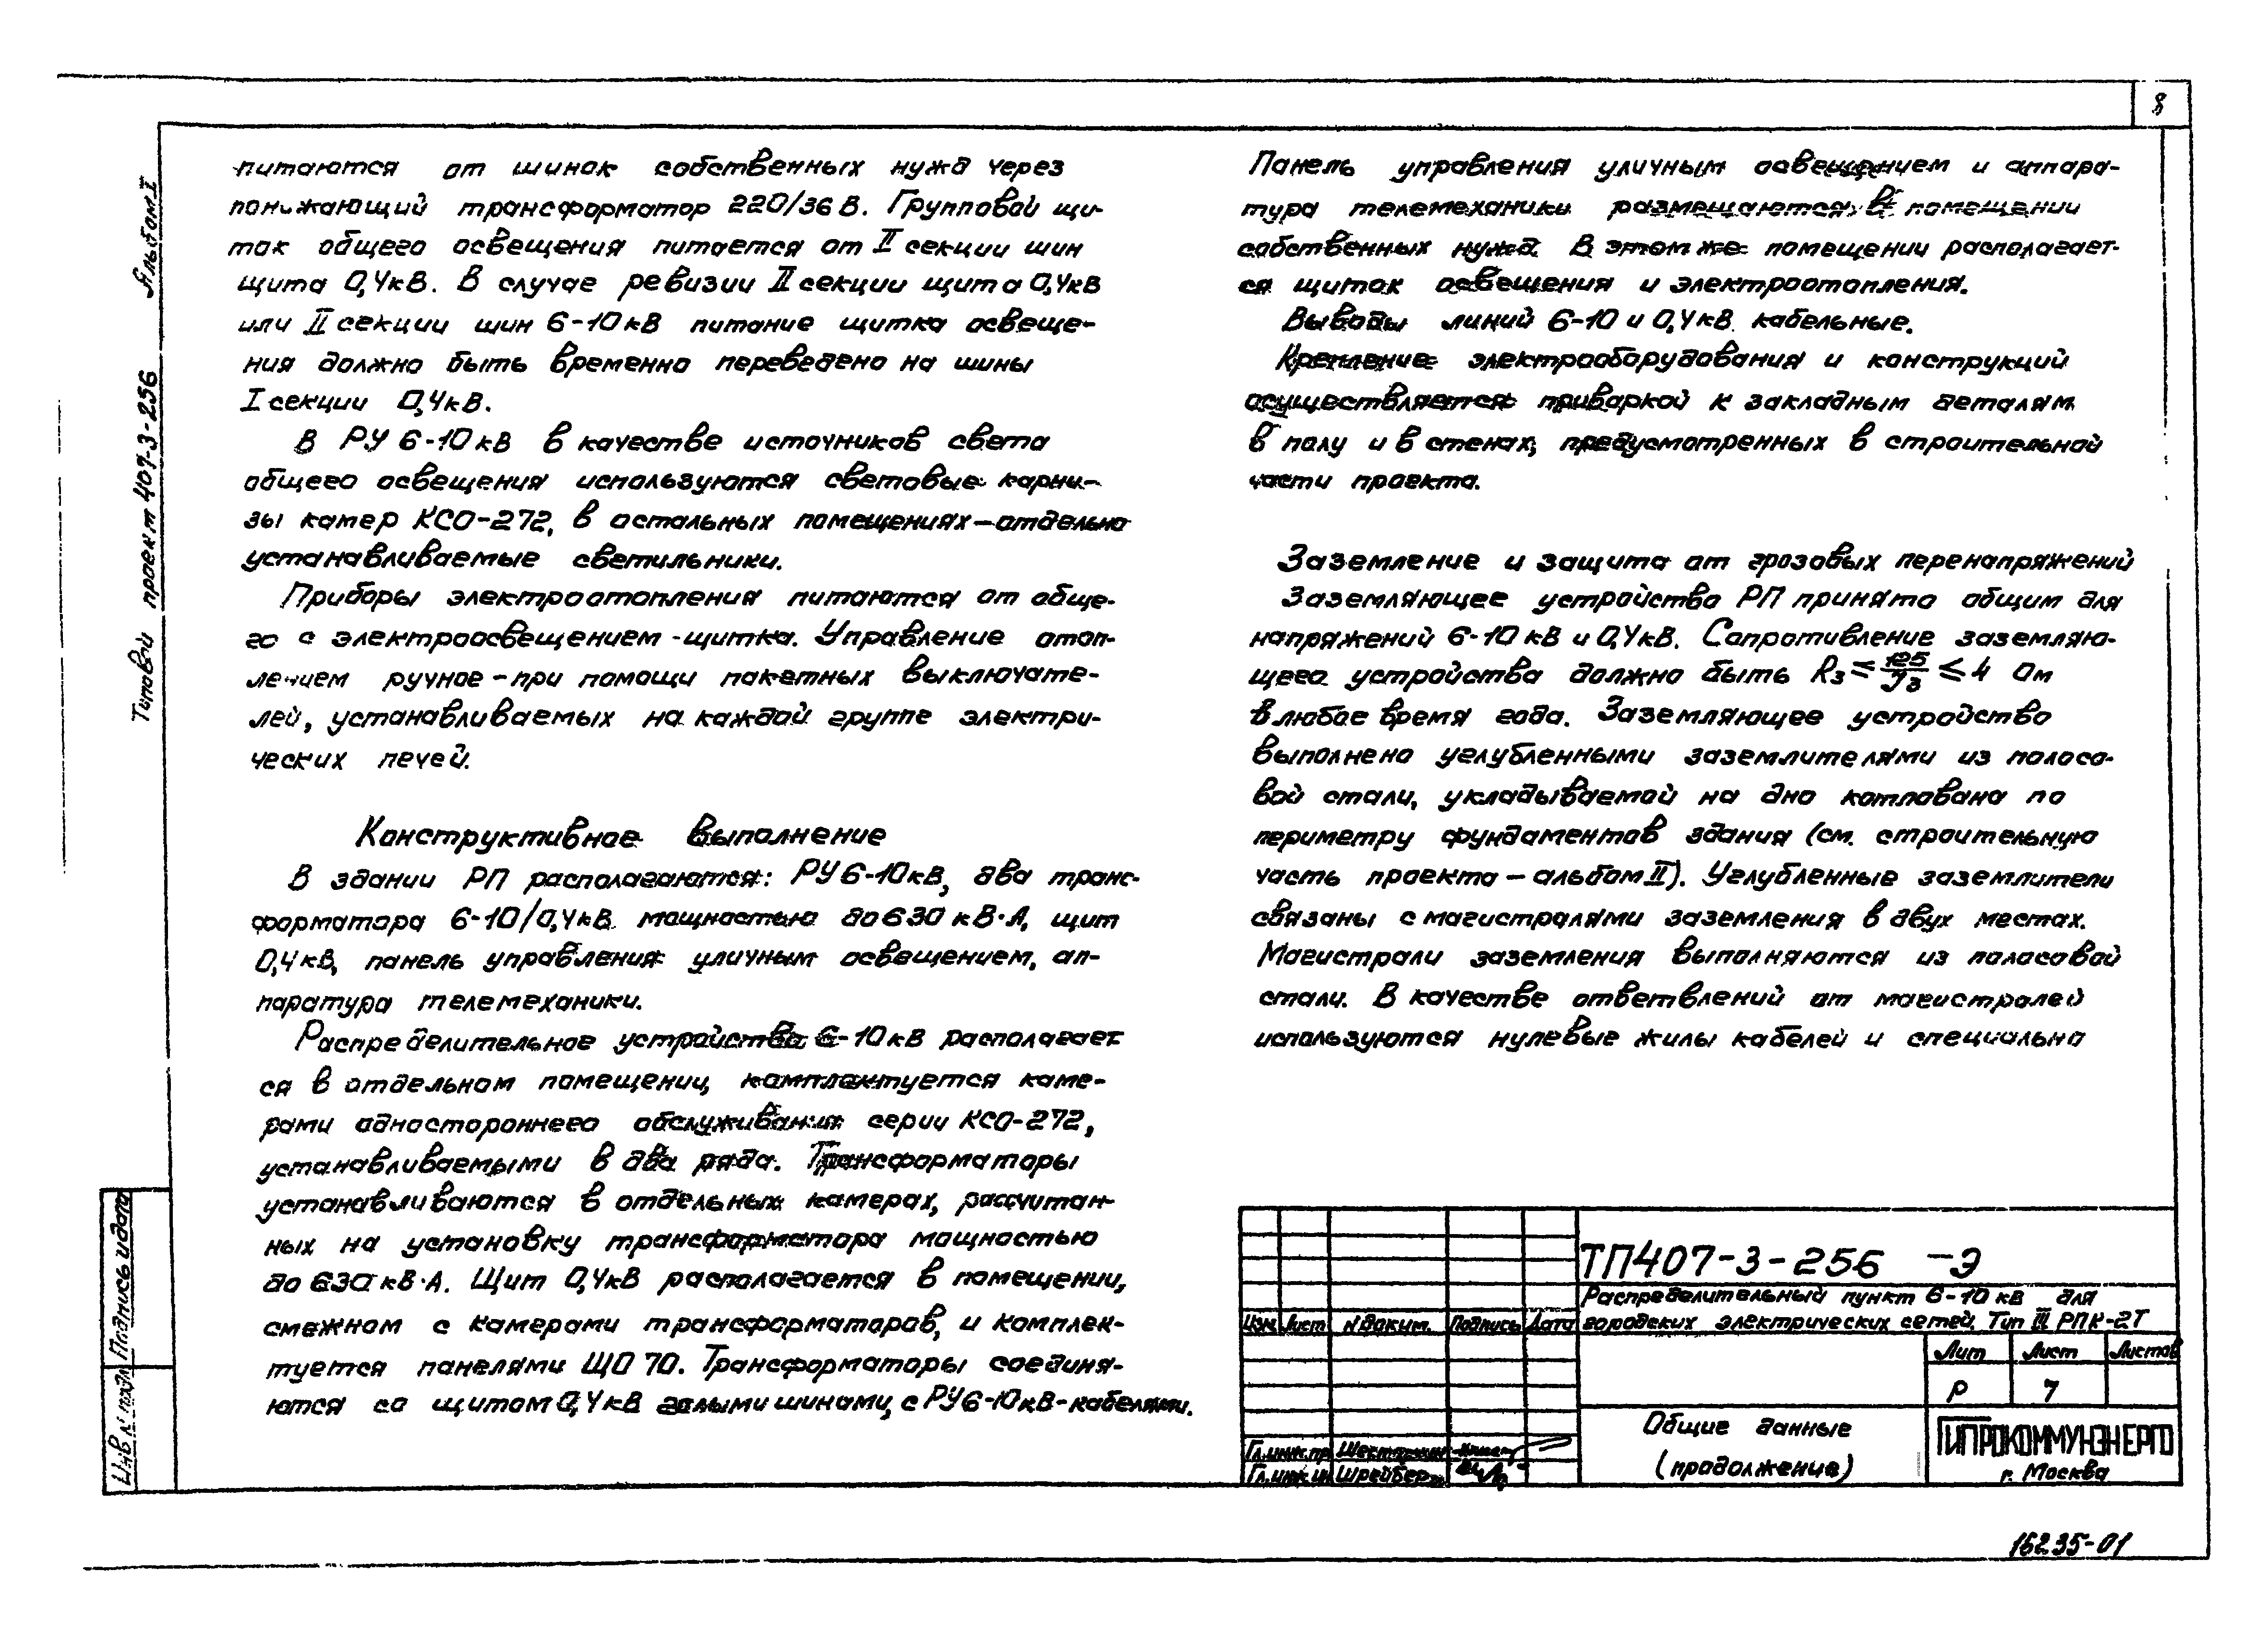 8
Типовой проект 407-3-256 Альбом I
питаются от шинок собственных нужд через
понижающий трансформатор 220/36 В. Групповой щи-
ток общего освещения питается от II секции шин
щита 0,4кВ. В случае ревизии II секции щита 0,4кВ
или II секции шин 6-10кВ питание щитка освеще-
ния должно быть временно переведено на шины
I секции 0,4кВ.
В РУ 6-10кВ в качестве источников света
общего освещения используются световые карни-
зы камер КСО-272, в остальных помещениях-отдельно
устанавливаемые светильники.
Приборы электроотопления питаются от обще-
го с электроосвещением-щитка. Управление отоп-
лением ручное-при помощи пакетных выключате-
лей, устанавливаемых на каждой группе электри-
ческих печей.
Конструктивное выполнение
В здании РП располагаются: РУ 6-10кВ, два транс-
форматора 6-10/0,4кВ мощностью до 630 кВ·А, щит
0,4кВ, панель управления уличным освещением, ап-
паратура телемеханики.
Распределительное устройство 6-10кВ располагает
ся в отдельном помещении, комплектуется каме-
рами одностороннего обслуживания серии КСО-272,
устанавливаемыми в два ряда. Трансформаторы
устанавливаются в отдельных камерах, рассчитан-
ных на установку трансформатора мощностью
до 630 кВ·А. Щит 0,4кВ располагается в помещении,
смежном с камерами трансформаторов, и комплек-
туется панелями ЩО 70. Трансформаторы соединя-
ются со щитом 0,4кВ голыми шинами, с РУ6-10кВ-кабелями.
Панель управления уличным освещением и аппара-
тура телемеханики размещаются в помещении
собственных нужд. В этом же помещении располагает-
ся щиток освещения и электроотопления.
Выводы линий 6-10 и 0,4кВ кабельные.
Крепление электрооборудования и конструкций
осуществляется приваркой к закладным деталям
в полу и в стенах, предусмотренных в строительной
части проекта.
Заземление и защита от грозовых перенапряжений
Заземляющее устройство РП принято общим для
напряжений 6-10 кВ и 0,4кВ. Сопротивление заземляю-
щего устройства должно быть Rз ≤ 125/Jз ≤ 4 Ом
в любое время года. Заземляющее устройство
выполнено углубленными заземлителями из полосо-
вой стали, укладываемой на дно котлована по
периметру фундаментов здания (см. строительную
часть проекта - альбом II). Углубленные заземлители
связаны с магистралями заземления в двух местах.
Магистрали заземления выполняются из полосовой
стали. В качестве ответвлений от магистралей
используются нулевые жилы кабелей и специально
ТП407-3-256 -Э
Распределительный пункт 6-10 кВ для
городских электрических сетей. Тип III РПК-2Т
Изм. Лист N докум. Подпись Дата
Лит Лист Листов
Р 7
Общие данные
(продолжение)
ГИПРОКОММУНЭНЕРГО
г. Москва
Гл.инж.пр
Гл.инж.ин Шрейбер
Подпись и дата
Инв N подл
16235-01